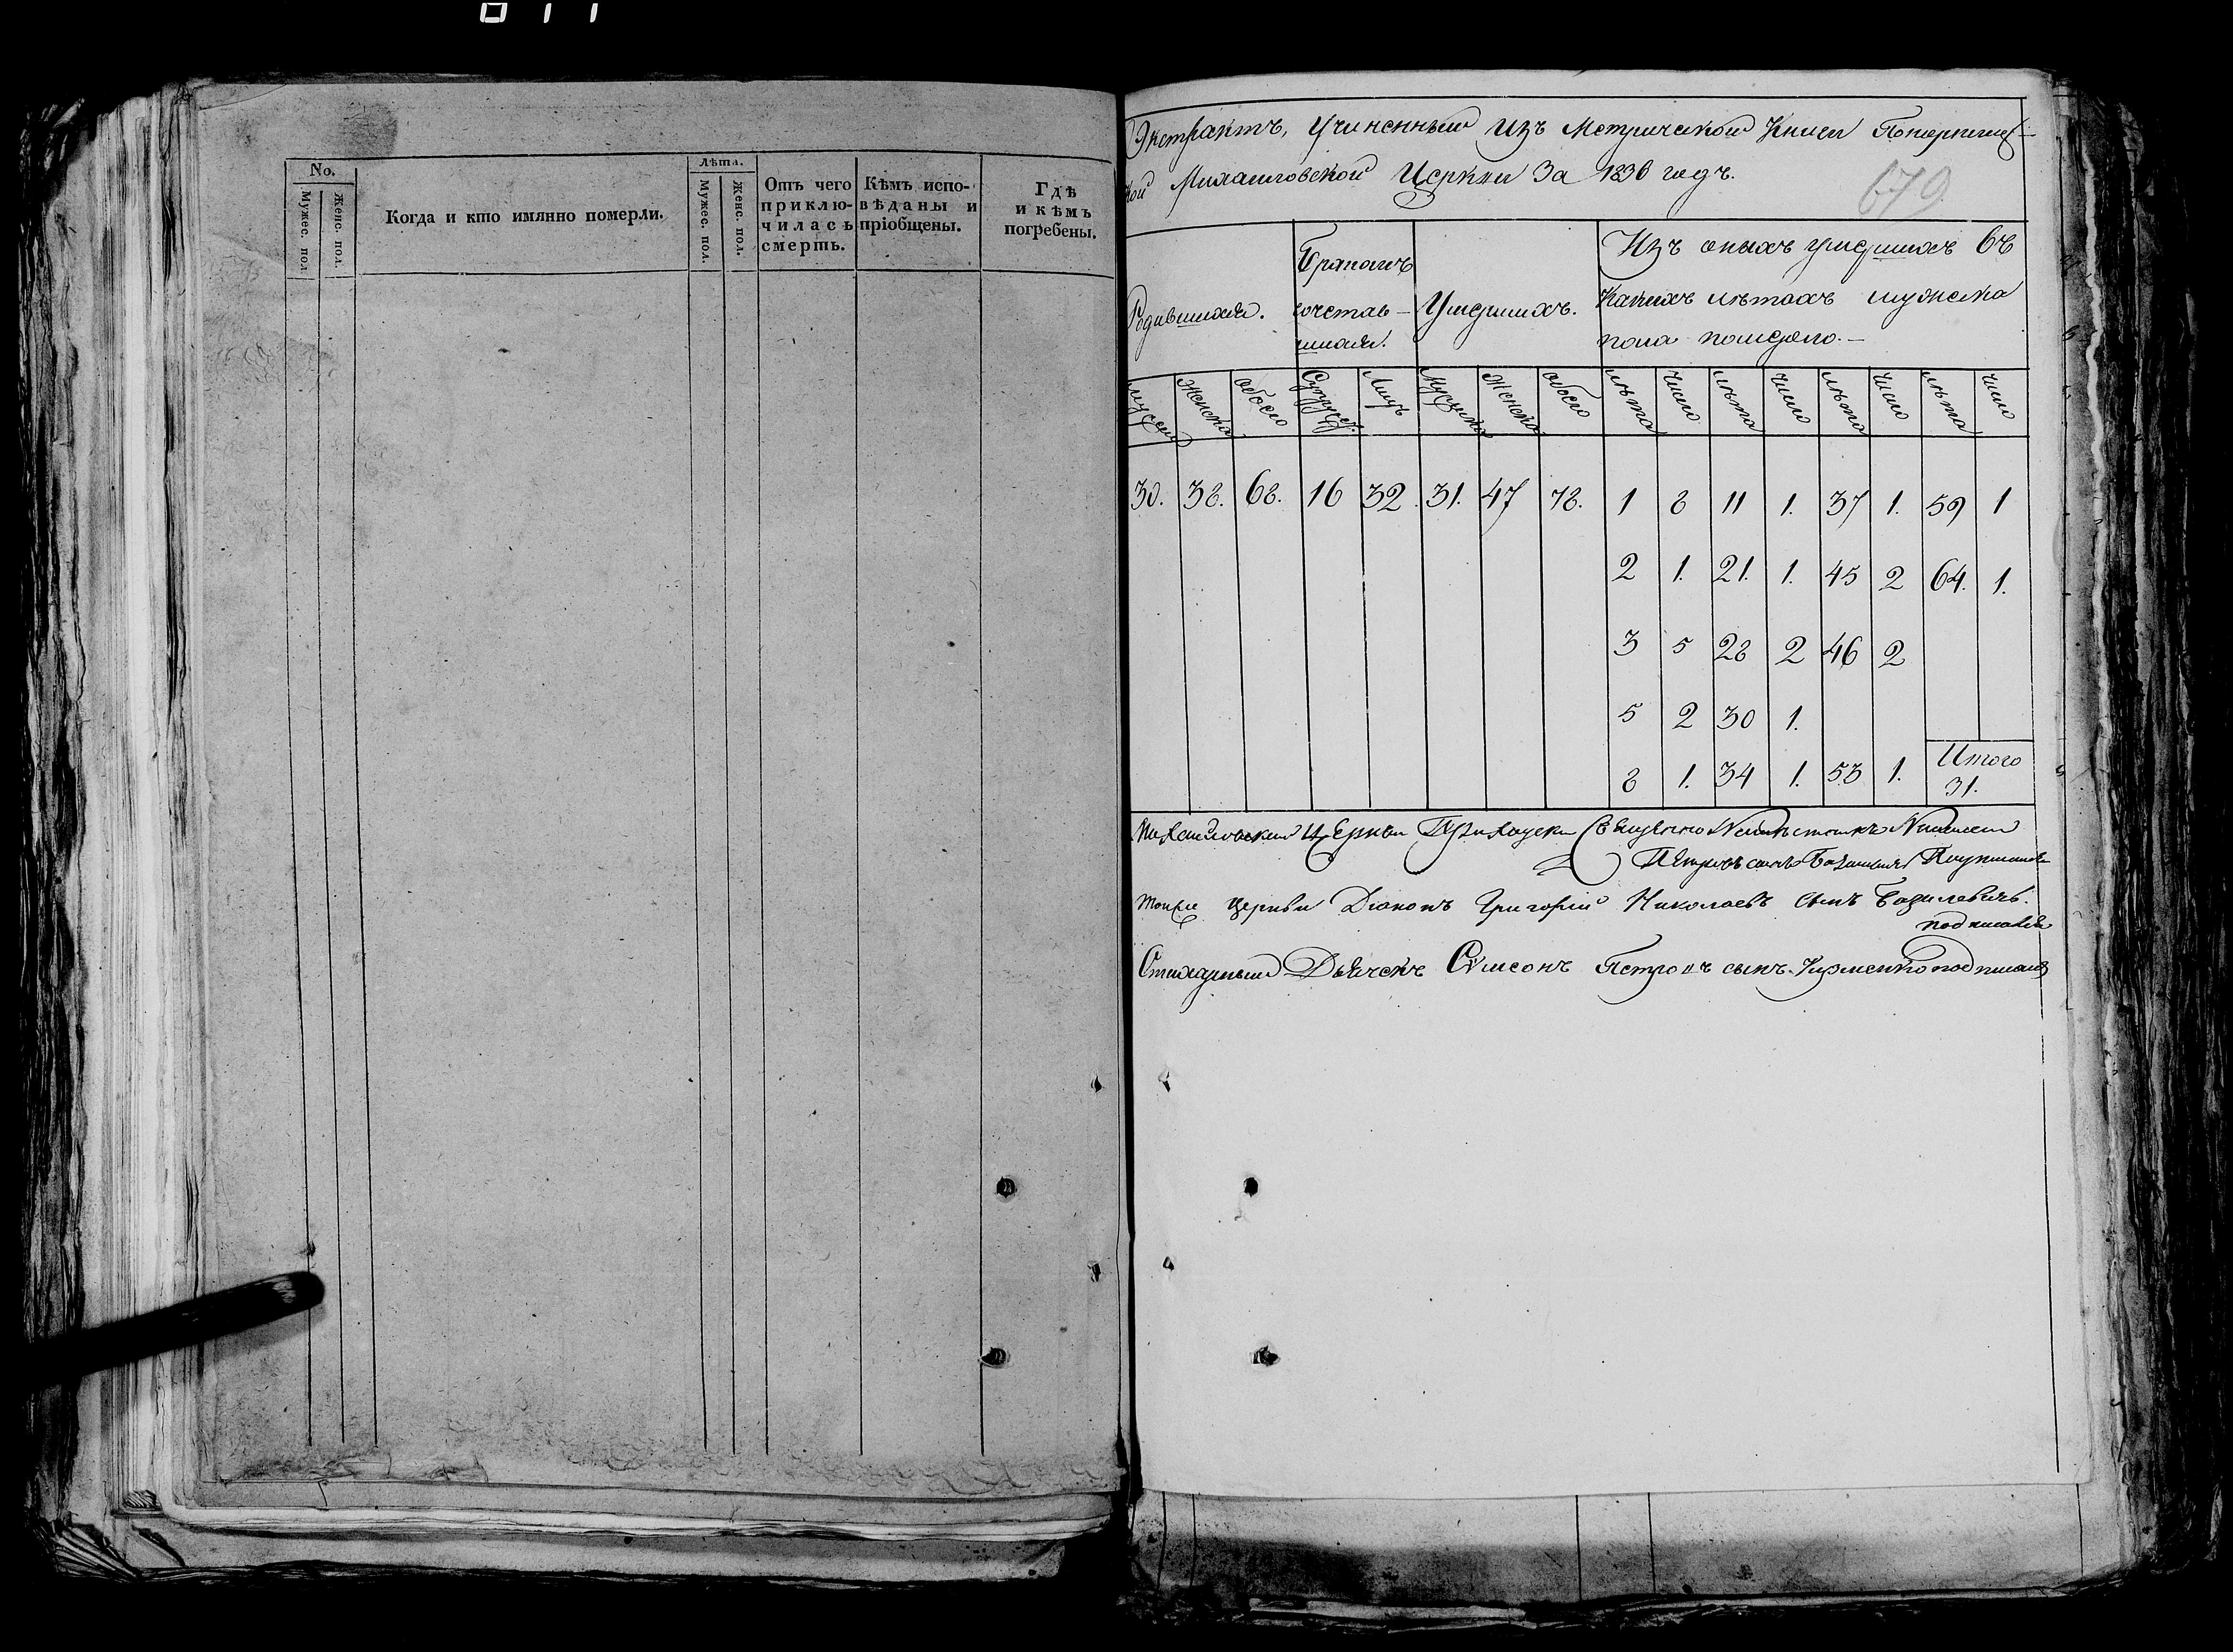 No.
Мужес. пол
Женс. пол.
Когда и кто имянно померли.
Лѣта.
Мужес. пол.
Женс. пол.
Отъ чего
приклю-
чилась
смерть.
Кѣмъ испо-
вѣданы и
пріобщены.
Гдѣ
и кѣмъ
погребены.
Экстрактъ, Учиненный Изъ Метрической Книги
кой Михаиловской Церкви За 1836 годъ.
679
Родившихся.
Бракомъ
сочетав-
шихся.
Умершихъ.
Изъ оныхъ умершихъ въ
Какихъ лѣтахъ мужеска
пола померло.-
Мужеска Женска обоего Супруж. Лицъ Мужеска Женска обоего лѣта число лѣта число лѣта число лѣта число
30. 38. 68. 16 32. 31. 47 78. 1 8 11 1. 37 1. 59 1
2 1. 21. 1. 45 2 64. 1.
3 5 28 2 46 2
5 2 30 1.
8 1. 34 1. 53 1. Итого
31.
Михаиловской Церкви Приходски
Петровъ сынъ
тоиже церкви Діаконъ Григорій Николаевъ сынъ Базилевичъ.
подписался
Стихарный Дьячекъ Сѵмеонъ Петровъ сынъ подписался